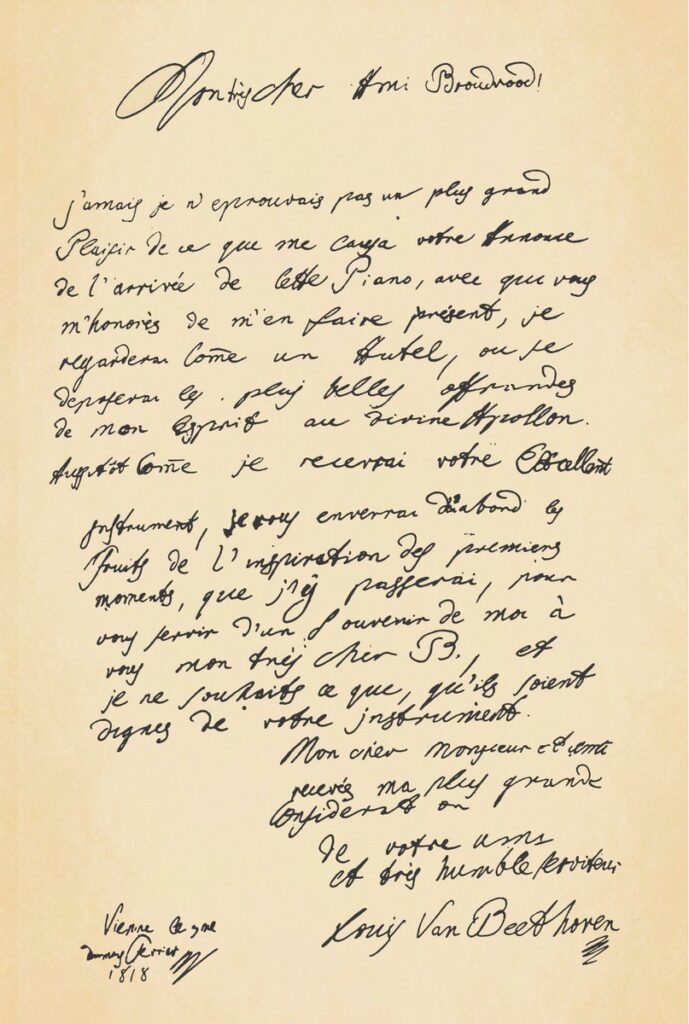 Montrès cher Ami Broudvood!
j'amais je n'eprouvais pas un plus grand
Plaisir de ce que me causa votre Annonce
de l'arrivée de cette Piano, avec que vous
m'honorès de m'en faire présent, je
regarderai Come un Autel, ou je
deposerai les plus belles offrandes
de mon Esprit au divine Apollon.
Aussitôt Come je recevrai votre Excellent
instrument, je vous enverrai d'abord les
Fruits de l'inspiration des premiers
moments, que j'y passerai, pour
vous servir d'un Souvenir de moi à
vous mon très cher B., et
je ne souhaits ce que, qu'ils soient
dignes de votre instrument.
Mon cher Monsieur et
recevés ma plus grande
Consideration
de votre ami
et très humble serviteur
Louis Van Beethoven
Vienne le
1818